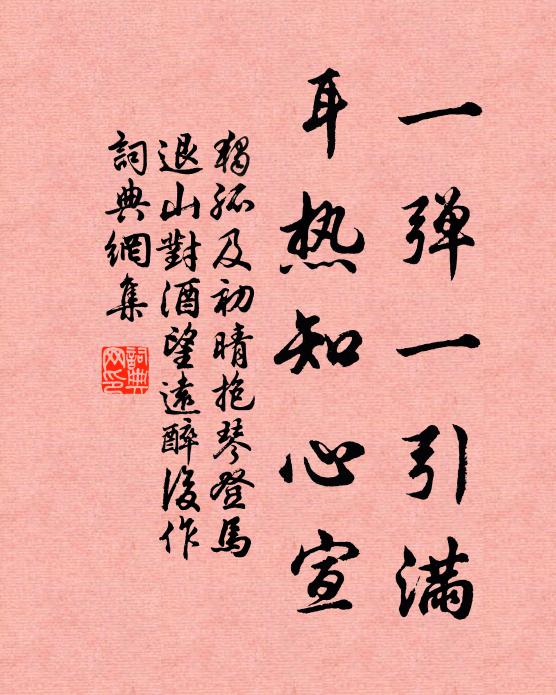 一弹一引满
耳热知心宣
獨孤及初晴抱琴登馬
退山對酒望遠醉後作
詞典網集
詞典
网印